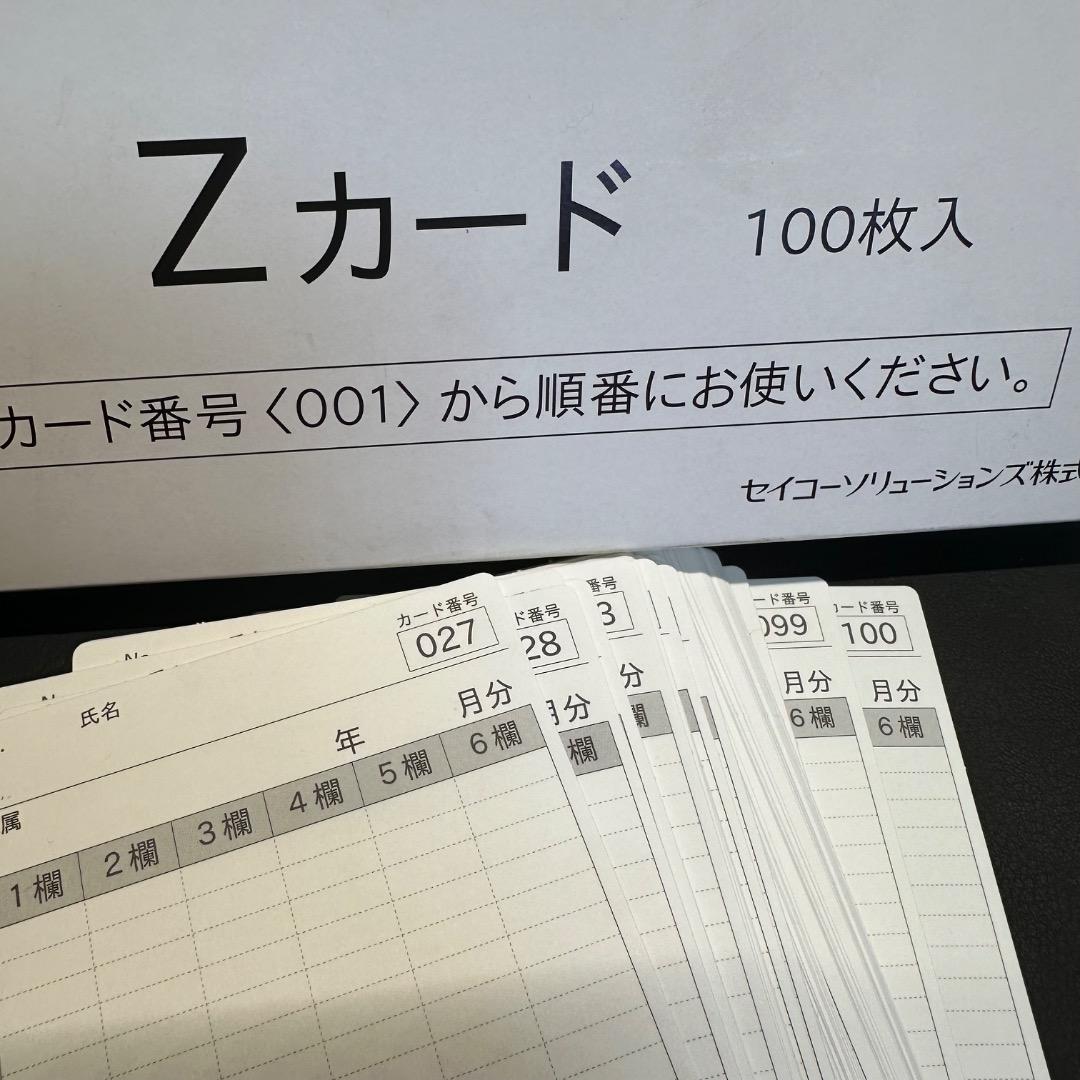 Zカード 100枚入
カード番号〈001〉から順番にお使いください。
セイコーソリューションズ株式
カード番号
027
氏名
年 月分
属
1欄 2欄 3欄 4欄 5欄 6欄
ド番号
28
月分
欄
番号
3
分
欄
ード番号
099
月分
6欄
カード番号
100
月分
6欄